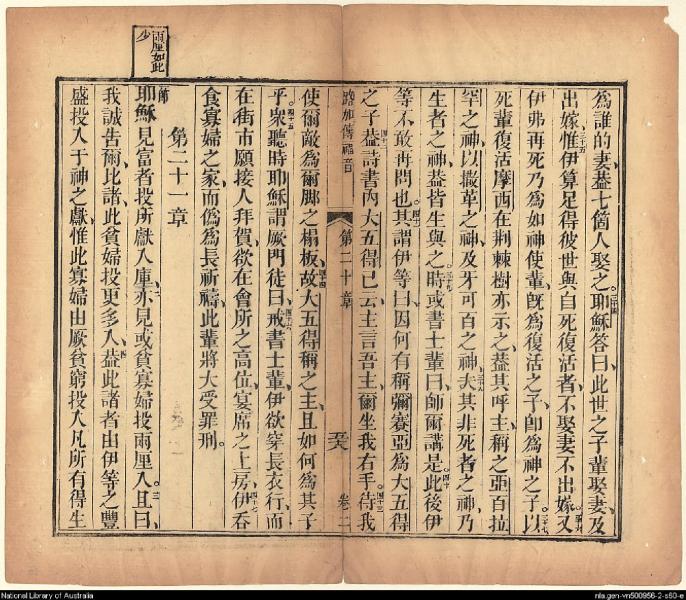 為誰的妻蓋七箇人娶之三十四耶穌答曰此世之子輩娶妻及
出嫁三十五惟伊算足得彼世與自死復活者不娶妻不出嫁三十六又
伊弗再死乃為如神使輩旣為復活之子卽為神之子三十七以
死輩復活摩西在荆棘樹亦示之蓋其呼主稱之亞百拉
罕之神以撒革之神及牙可百之神三十八夫其非死者之神乃
生者之神蓋皆生與之三十九時或書士輩曰師爾講是四十此後伊
等不敢再問也四十一其謂伊等曰因何有稱彌賽亞為大五得
之子四十二蓋詩書內大五得已云主言吾主爾坐我右手四十三待我
路加傳福音 第二十章 卷二
使爾敵為爾脚之榻板四十四故大五得稱之主且如何為其子
乎四十五衆聽時耶穌謂厥門徒曰四十六戒書士輩伊欲穿長衣行而
在街市願接人拜賀欲在會所之高位宴席之上房四十七伊吞
食寡婦之家而偽為長祈禱此輩將大受罪刑。
第二十一章
兩厘如此少
節耶穌見富者投所獻入庫二亦見或貧寡婦投兩厘入三且曰
我誠告爾比諸此貧婦投更多入四蓋此諸者由伊等之豐
盛投入于神之獻惟此寡婦由厥貧窮投入凡所有得生
National Library of Australia
nla.gen-vn500956-2-s50-e